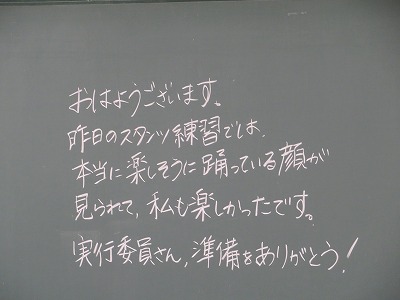 おはようございます。
昨日のスタンツ練習では、
本当に楽しそうに踊っている顔が
見られて、私も楽しかったです。
実行委員さん、準備をありがとう!